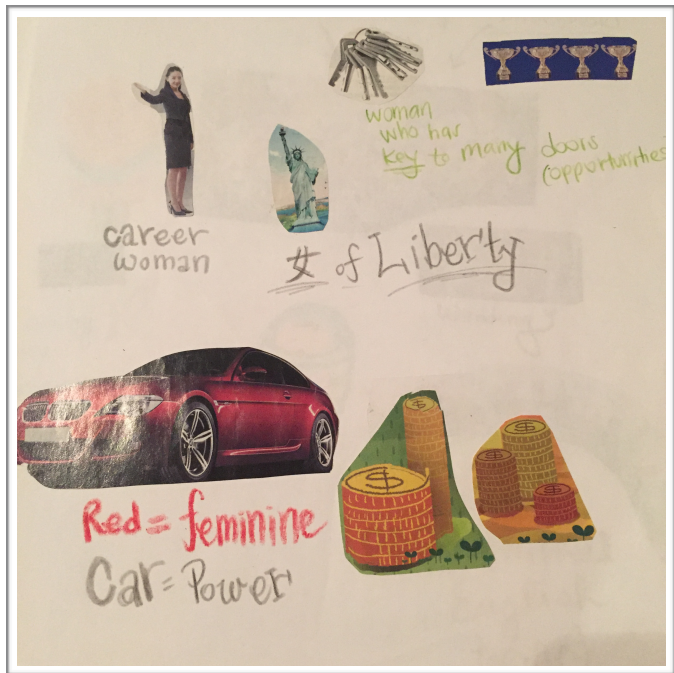 woman
who has
key to many doors
(opportunities
career
woman
女 of Liberty
Red = feminine
Car = Power
$
$
$